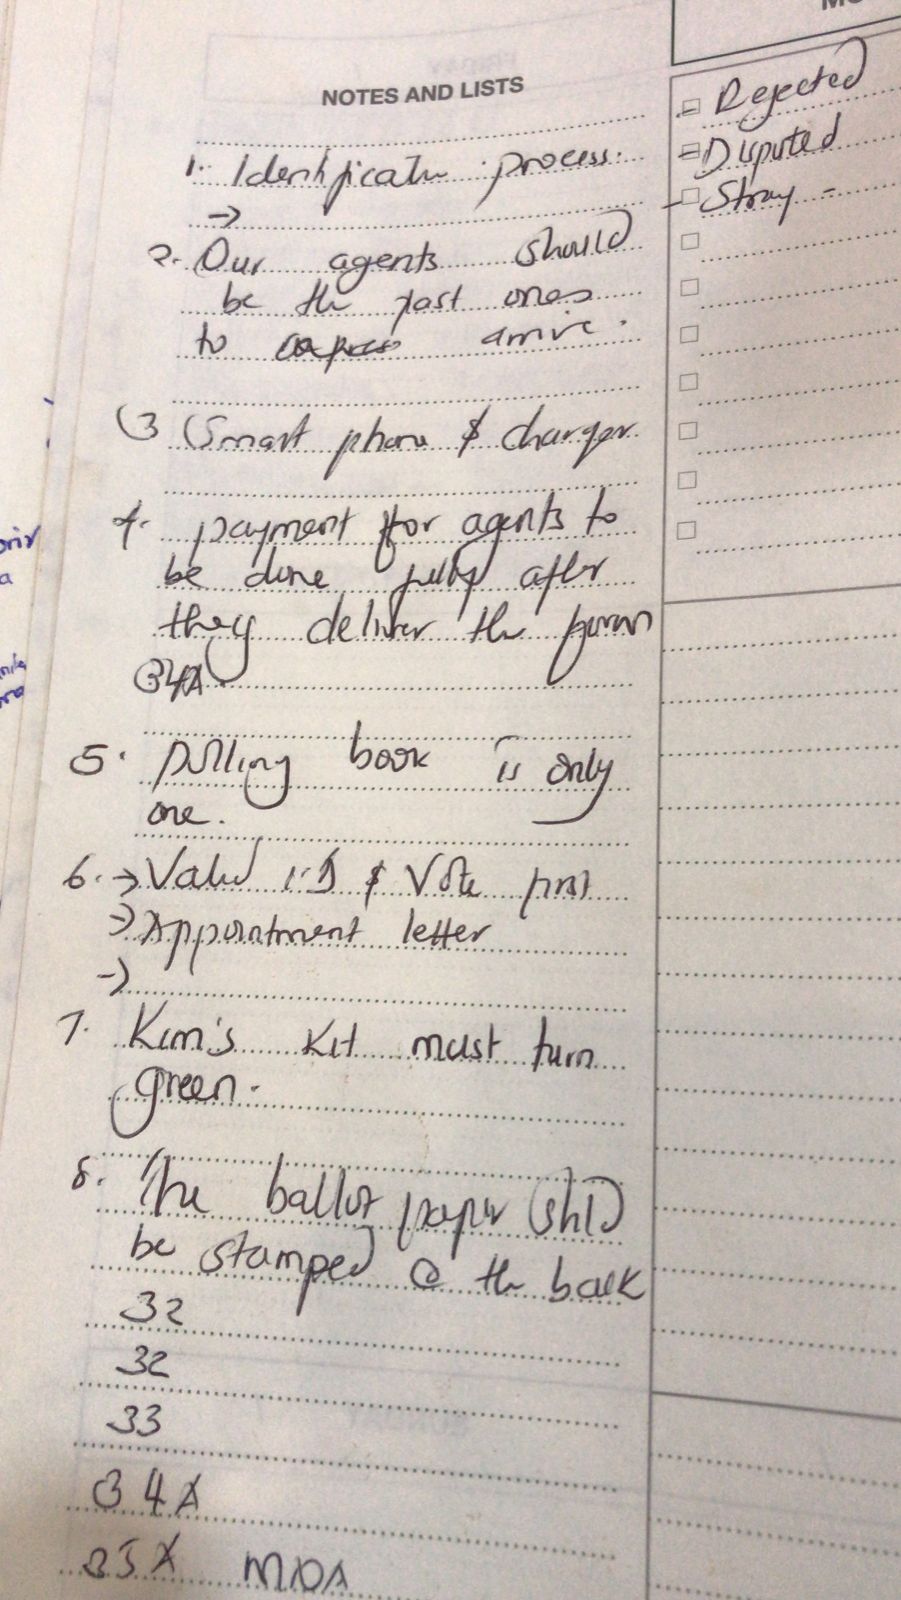 NOTES AND LISTS
1. Identificatn process.
→
2. Our agents should
be the past ones
to arrive.
(3 Smart phone & charger
4. payment for agents to
be done fully after
they deliver the form
34A
5. polling book is only
one.
6. → Valid I.D & Vote first
→ Appointment letter
→
7. Kim's Kit must turn
green.
8. The ballot paper shld
be stamped @ the back
32
32
33
34A
35A MDA
- Rejected
- Disputed
- Stray -